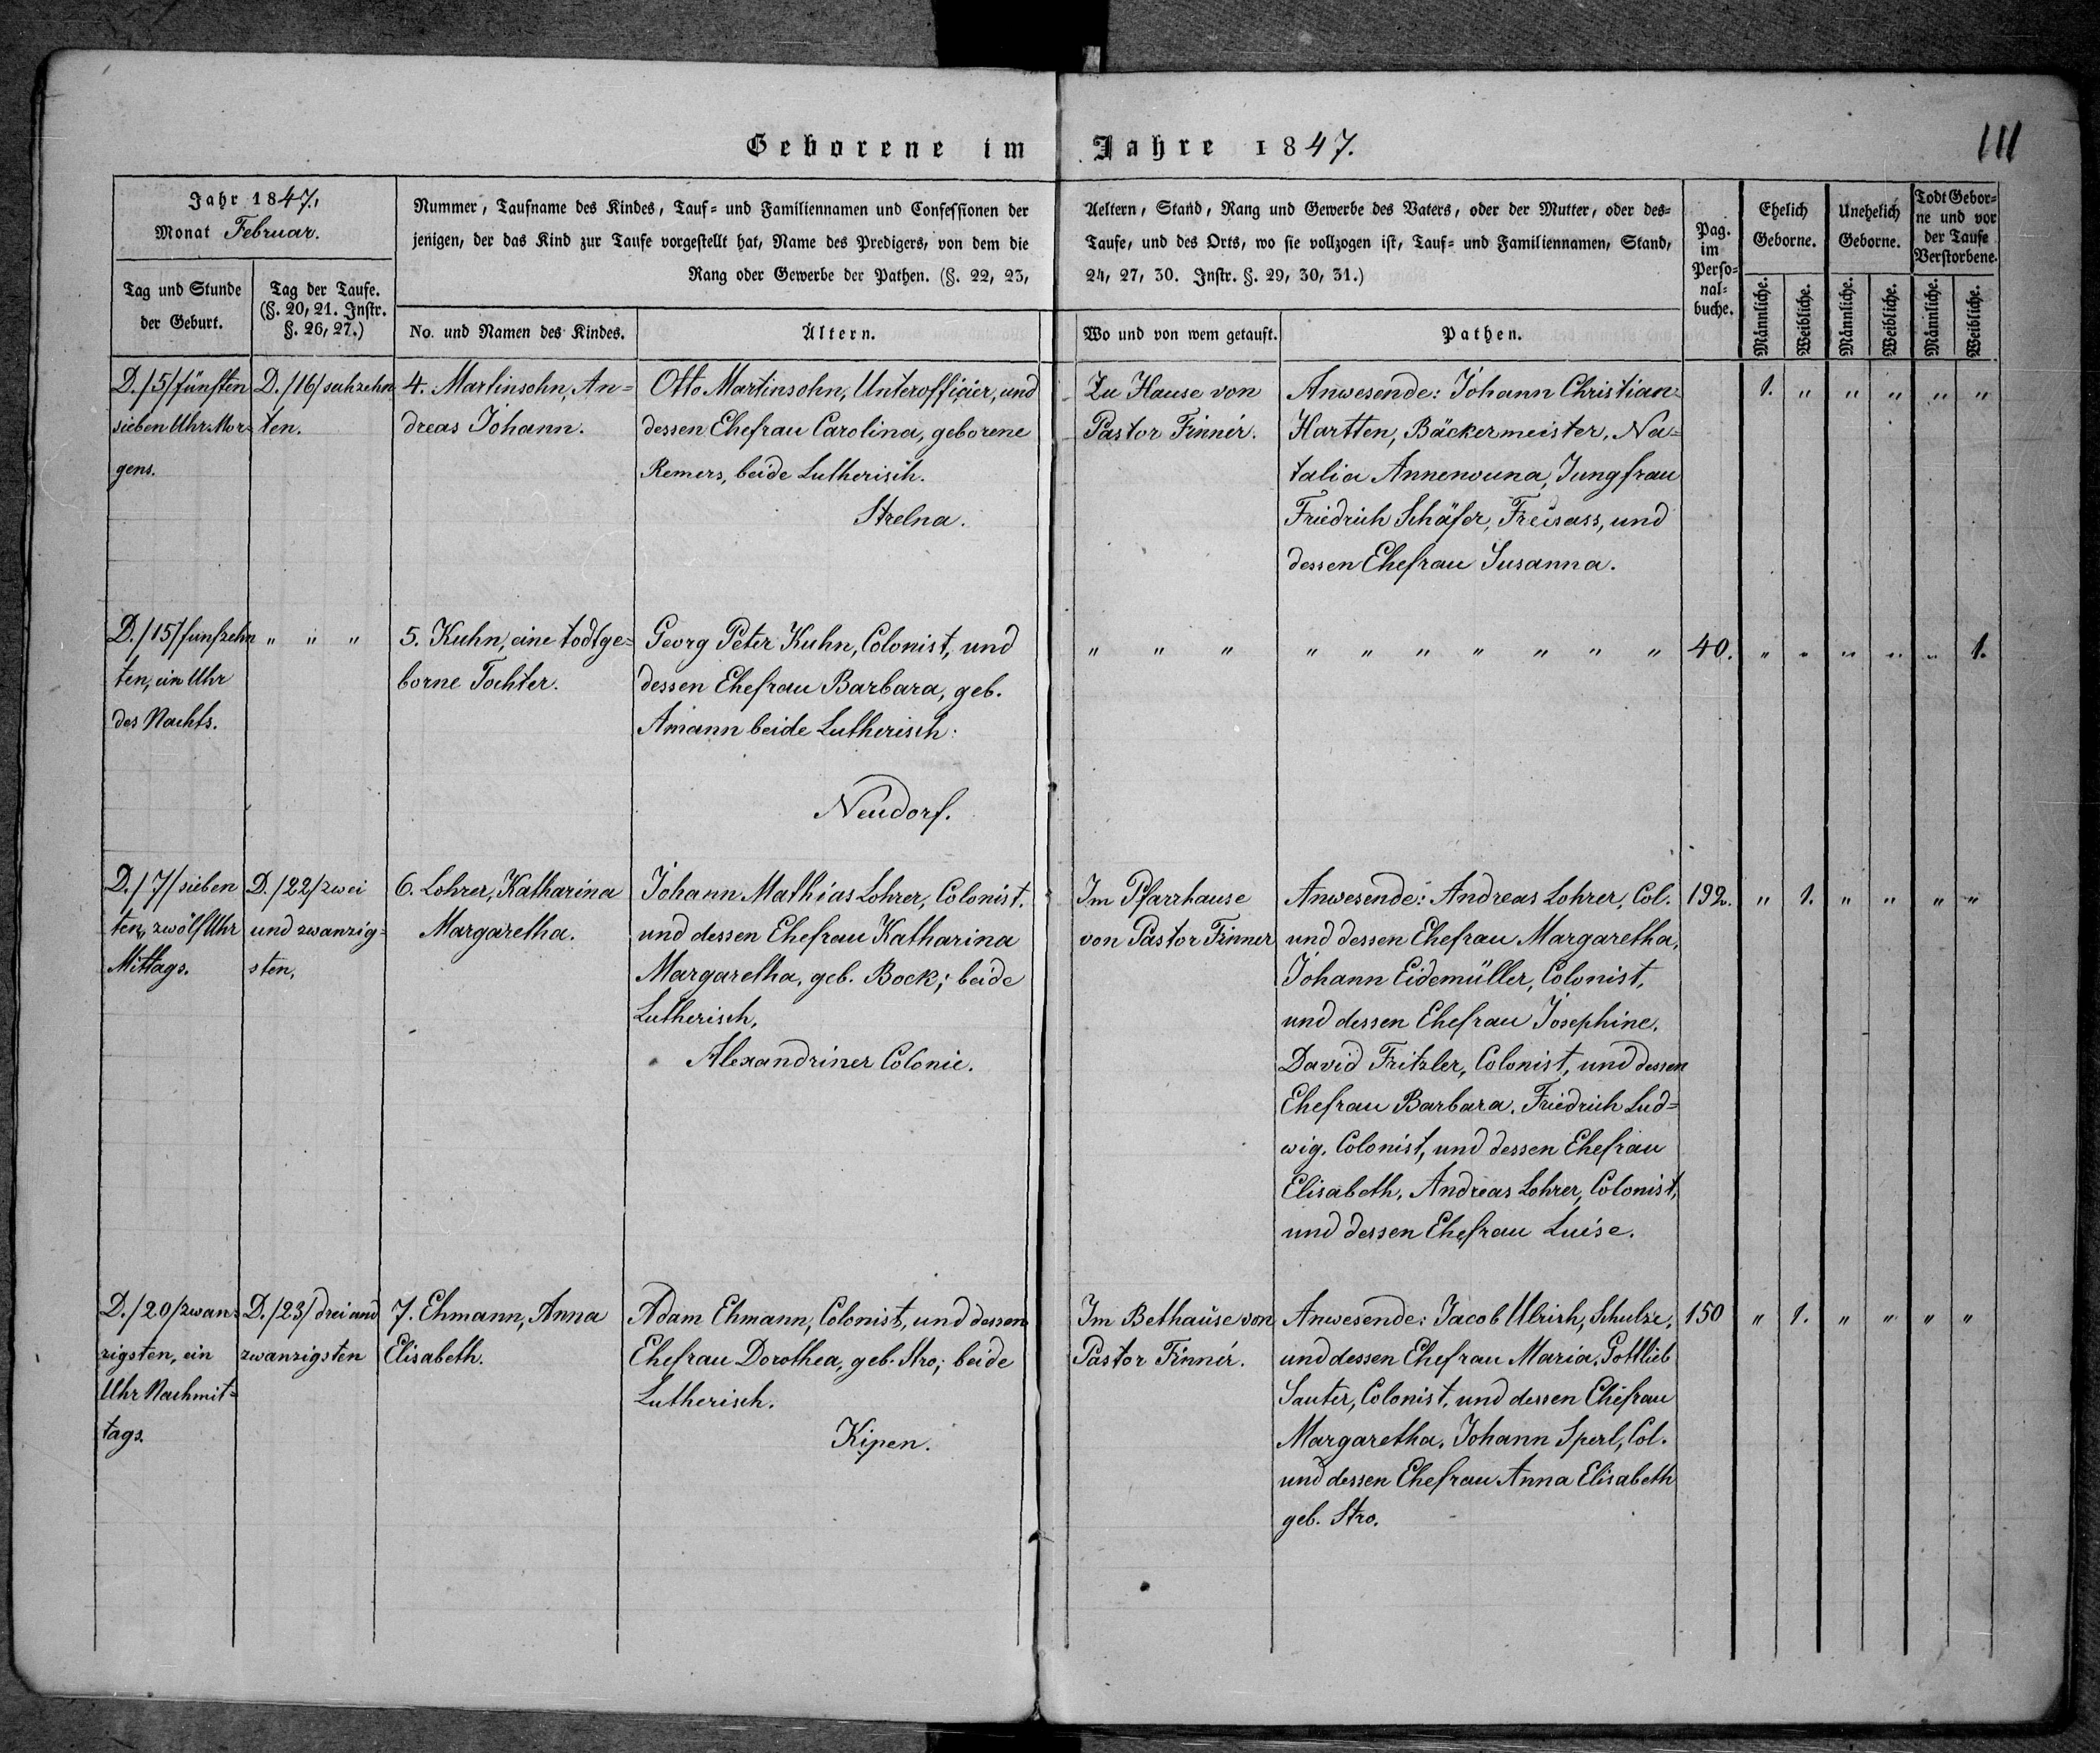 Geborene im Jahre 1847.
111
Jahr 1847,
Monat Februar.
Tag und Stunde
der Geburt.
Tag der Taufe.
(§. 20, 21. Instr.
§. 26, 27.)
Nummer, Taufname des Kindes, Tauf- und Familiennamen und Confessionen der
jenigen, der das Kind zur Taufe vorgestellt hat, Name des Predigers, von dem die
Rang oder Gewerbe der Pathen. (§. 22, 23,
No. und Namen des Kindes.
Ältern.
Aeltern, Stand, Rang und Gewerbe des Vaters, oder der Mutter, oder des-
Taufe, und des Orts, wo sie vollzogen ist, Tauf- und Familiennamen, Stand,
24, 27, 30. Instr. §. 29, 30, 31.)
Wo und von wem getauft.
Pathen.
Pag.
im
Perso-
nal-
buche.
Ehelich
Geborne.
Männliche.
Weibliche.
Unehelich
Geborne.
Männliche.
Weibliche.
Todt Gebor-
ne und vor
der Taufe
Verstorbene.
Männliche.
Weibliche.
D. /5/ fünften
sieben Uhr Mor-
gens.
D. /16/ sechzehn
ten.
4. Martinsohn, An-
dreas Johann.
Otto Martinsohn, Unterofficier, und
dessen Ehefrau Carolina, geborene
Remers, beide Lutherisch.
Strelna.
Zu Hause von
Pastor Finnér.
Anwesende: Johann Christian
Hartten, Bäckermeister, Na-
talia Annenouna, Jungfrau
Friedrich Schäfer, Freisass, und
dessen Ehefrau Susanna.
1. " " " " "
D. /15/ funfzehn
ten, ein Uhr
des Nachts.
" " "
5. Kuhn, eine todtge-
borne Tochter.
Georg Peter Kuhn, Colonist, und
dessen Ehefrau Barbara, geb.
Amann beide Lutherisch:
Neudorf.
" " "
" " " " " " "
40.
" " " " " 1.
D. /7/ sieben
ten, zwölf Uhr
Mittags.
D. /22/ zwei
und zwanzig-
sten,
6. Lohrer, Katharina
Margaretha.
Johann Mathias Lohrer, Colonist.
und dessen Ehefrau Katharina
Margaretha, geb. Bock; beide
Lutherisch,
Alexandriner Colonie.
Im Pfarrhause
von Pastor Finner
Anwesende: Andreas Lohrer, Col.
und dessen Ehefrau Margaretha,
Johann Eidemüller, Colonist,
und dessen Ehefrau Josephine.
David Fritzler, Colonist, und dessen
Ehefrau Barbara. Friedrich Lud-
wig, Colonist, und dessen Ehefrau
Elisabeth, Andreas Lohrer, Colonist,
und dessen Ehefrau Luise.
192.
" 1. " " " "
D. /20/ zwan-
zigsten, ein
Uhr Nachmit-
tags.
D. /23/ drei und
zwanzigsten
7. Ehmann, Anna
Elisabeth.
Adam Ehmann, Colonist, und dessen
Ehefrau Dorothea, geb. Stro; beide
Lutherisch.
Kipen.
Im Bethause von
Pastor Finnér.
Anwesende: Jacob Ulrich, Schulze,
und dessen Ehefrau Maria, Gottlieb
Sauter, Colonist, und dessen Ehefrau
Margaretha, Johann Sperl, Col.
und dessen Ehefrau Anna Elisabeth
geb. Stro.
150
" 1. " " " "